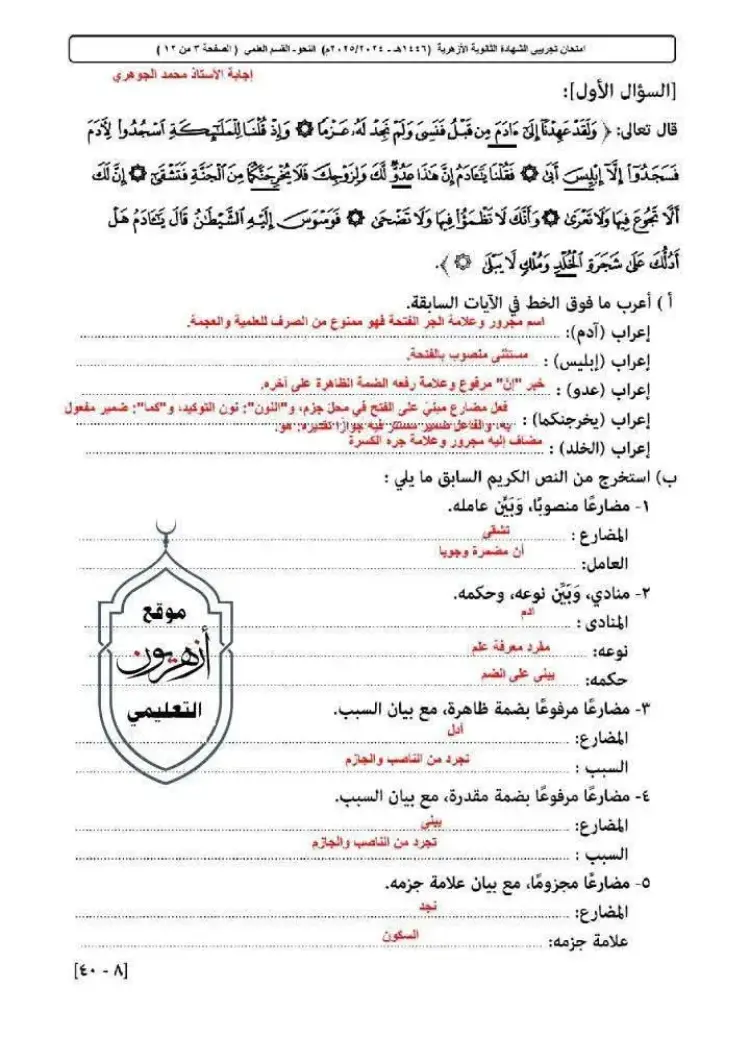 امتحان تجريبي الشهادة الثانوية الأزهرية (١٤٤٦هـ - ٢٠٢٥/٢٠٢٤م) النحو- القسم العلمي ( الصفحة ٣ من ١٢ )
إجابة الأستاذ محمد الجوهري
[السؤال الأول]:
قال تعالى: ﴿ وَلَقَدْ عَهِدْنَآ إِلَىٰٓ ءَادَمَ مِن قَبْلُ فَنَسِىَ وَلَمْ نَجِدْ لَهُۥ عَزْمًا ۞ وَإِذْ قُلْنَا لِلْمَلَٰٓئِكَةِ ٱسْجُدُوا۟ لِأَدَمَ
فَسَجَدُوٓا۟ إِلَّآ إِبْلِيسَ أَبَىٰ ۞ فَقُلْنَا يَٰٓـَٔادَمُ إِنَّ هَٰذَا عَدُوٌّ لَّكَ وَلِزَوْجِكَ فَلَا يُخْرِجَنَّكُمَا مِنَ ٱلْجَنَّةِ فَتَشْقَىٰٓ ۞ إِنَّ لَكَ
أَلَّا تَجُوعَ فِيهَا وَلَا تَعْرَىٰ ۞ وَأَنَّكَ لَا تَظْمَؤُا۟ فِيهَا وَلَا تَضْحَىٰ ۞ فَوَسْوَسَ إِلَيْهِ ٱلشَّيْطَٰنُ قَالَ يَٰٓـَٔادَمُ هَلْ
أَدُلُّكَ عَلَىٰ شَجَرَةِ ٱلْخُلْدِ وَمُلْكٍ لَّا يَبْلَىٰ ۞ ﴾.
أ ) أعرب ما فوق الخط في الآيات السابقة.
إعراب (آدم): اسم مجرور وعلامة الجر الفتحة فهو ممنوع من الصرف للعلمية والعجمة.
إعراب (إبليس) : مستثنى منصوب بالفتحة.
إعراب (عدو) : خبر "إنّ" مرفوع وعلامة رفعه الضمة الظاهرة على آخره.
إعراب (يخرجنكما) : فعل مضارع مبنيّ على الفتح في محلّ جزم، و"النون": نون التوكيد، و"كما": ضمير مفعول
به، والفاعل ضمير مستتر فيه جوازًا تقديره: هو.
إعراب (الخلد) : مضاف إليه مجرور وعلامة جره الكسرة
ب) استخرج من النص الكريم السابق ما يلي :
١- مضارعًا منصوبًا، وَبَيِّن عامله.
المضارع : تشقى
العامل: أن مضمرة وجوبا
٢- منادي، وَبَيِّن نوعه، وحكمه.
المنادى : ادم
نوعه: مفرد معرفة علم
حكمه: يبنى على الضم
٣- مضارعًا مرفوعًا بضمة ظاهرة، مع بيان السبب.
المضارع: أدل
السبب : تجرد من الناصب والجازم
٤- مضارعًا مرفوعًا بضمة مقدرة، مع بيان السبب.
المضارع: يبلى
السبب : تجرد من الناصب والجازم
٥- مضارعًا مجزومًا، مع بيان علامة جزمه.
المضارع: نجد
علامة جزمه: السكون
موقع
أزهريون
التعليمي
[٨ - ٤٠]